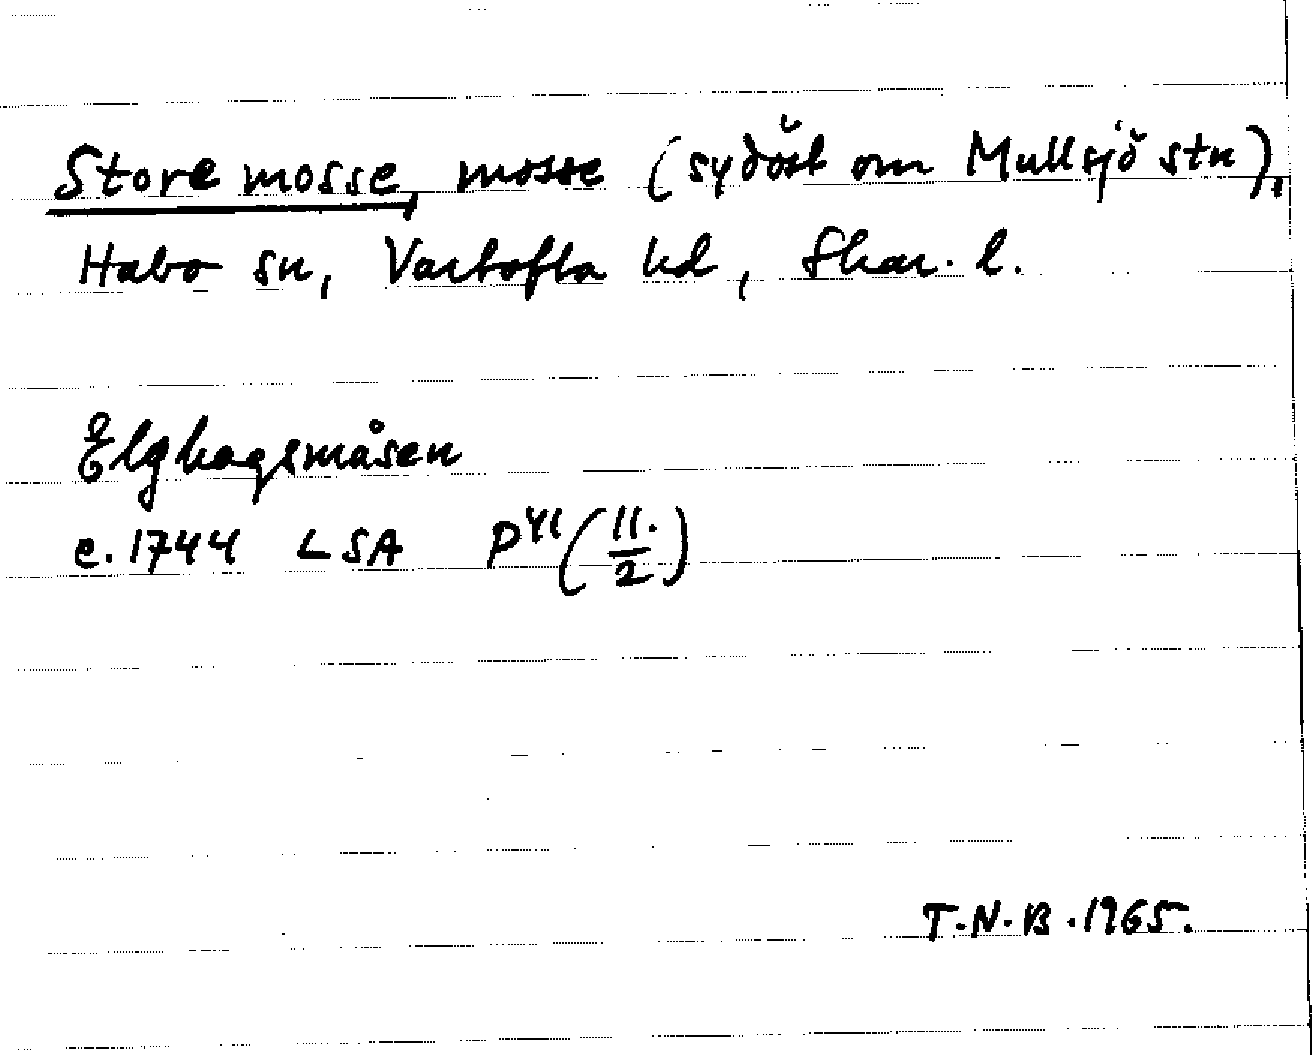 Store mosse, mosse (sydöst om Mullsjö stn),
Habo sn, Vartofta hd, Skar. l.
Elghagsmåsen
c. 1744 LSA P41 (11./2)
T.N.B. 1965.